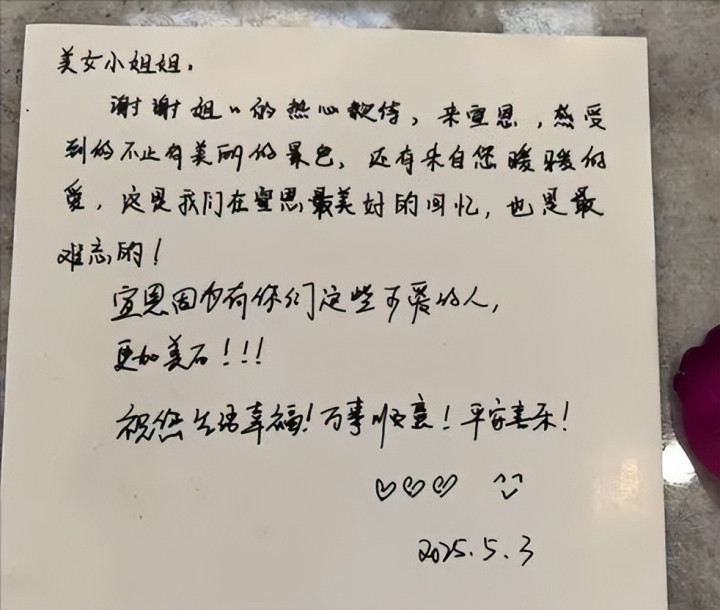 美女小姐姐.
谢谢姐〃的热心款待，来宣恩，感受
到的不止有美丽的景色，还有来自您暖暖的
爱，这是我们在宣恩最美好的回忆，也是最
难忘的！
宣恩因为有你们这些可爱的人，
更加美丽！！！
祝您生活幸福！万事顺意！平安喜乐！
♡♡♡
2025.5.3